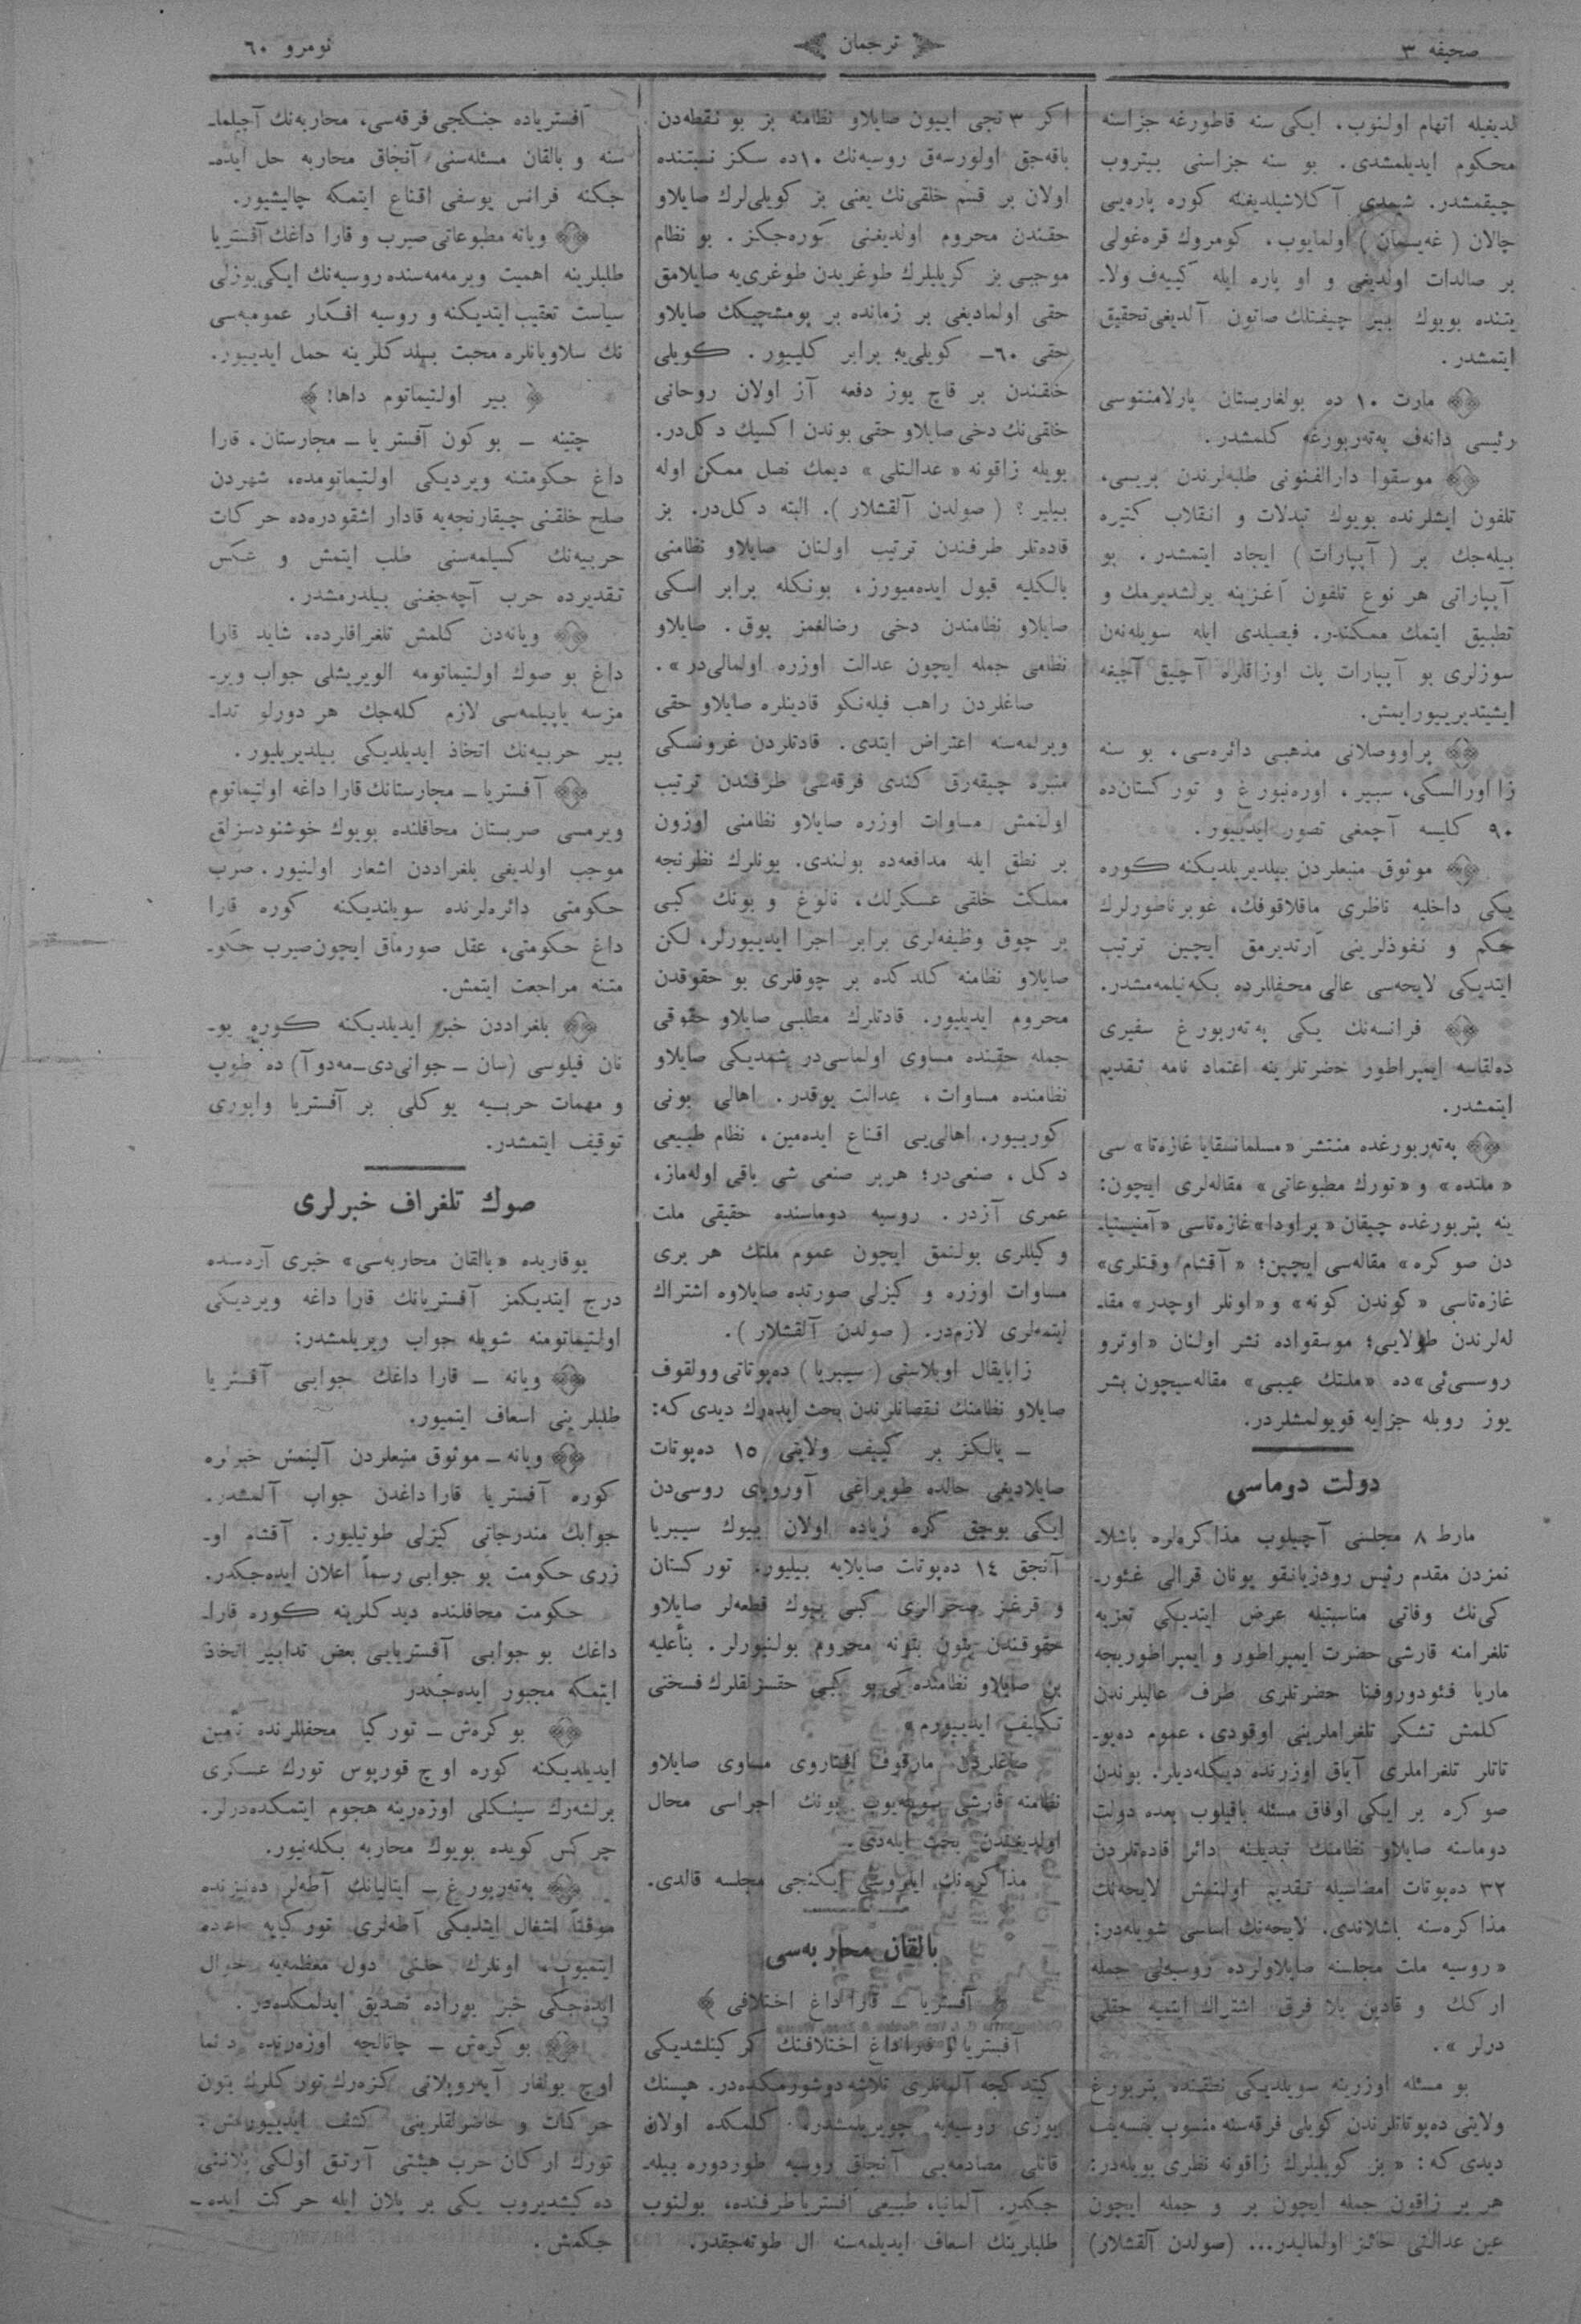 صحیفه ٣
ترجمان
نومرو ٦٠
لدیغیله اتهام اولنوب. ایکی سنه قاطورغه جزاسنه
محکوم ایدیلمشدی. بو سنه جزاسنی بیتروب
چیقمشدر. شیمدی آکلاشیلدیغنه کوره پاره‌یی
چالان (غه‌یسمان) اولمایوب، کومروك قره‌غولی
بر صالدات اولدیغی و او پاره ایله کییه‌ف ولا‌ـ
یتنده بویوك بیر چیفتلك صاتون آلدیغی تحقیق
ایتمشدر.
مارت ١٠ ده بولغارستان پارلامنتوسی
رئیسی دانه‌ف په‌ته‌ربورغه کلمشدر.
موسقوا دارالفنونی طلبه‌لرندن بریسی،
تلفون ایشلرنده بویوك تبدلات و انقلاب کتیره
بیله‌جك بر (آپپارات) ایجاد ایتمشدر. بو
آپپاراتی هر نوع تلفون آغزینه یرلشدیرمك و
تطبیق ایتمك ممکندر. فیصیلدی ایله سویله‌نه‌ن
سوزلری بو آپپارات پك اوزاقلره آچیق آچیغه
ایشیتدیرییورایمش.
پراووصلانی مذهبی دائره‌سی، بو سنه
زااورالسکی، سیبیر، اوره‌نبورغ و تورکستان‌ده
٩٠ کلیسه آچمغی تصور ایدییور.
موثوق منبعلردن بیلدیریلدیکنه کوره
یکی داخلیه ناظری ماقلاقوفك، غوبرناطورلرك
حکم و نفوذلرینی آرتدیرمق ایچین ترتیب
ایتدیکی لایحه‌سی عالی محفللرده بکه‌نیلمه‌مشدر.
فرانسه‌نك یکی په‌ته‌ربورغ سفیری
ده‌لقاسه ایمپراطور حضرتلرینه اعتماد نامه تقدیم
ایتمشدر.
په‌ته‌ربورغده منتشر «مسلمانسقایا غازه‌تا» سی
«ملتده» و «تورك مطبوعاتی» مقاله‌لری ایچون؛
ینه پتربورغده چیقان «پراودا» غازه‌تاسی «آمنیستیاـ
دن صوکره» مقاله‌سی ایچین؛ «آقشام وقتلری»
غازه‌تاسی «کوندن کونه» و «اونلر اوچدر» مقاـ
له‌لرندن طولایی؛ موسقواده نشر اولنان «اوترو
روسسی‌ئی» ده «ملتك عیبی» مقاله‌سیچون بشر
یوز روبله جزایه قویولمشلردر.
دولت دوماسی
مارط ٨ مجلسی آچیلوب مذاکره‌لره باشلاـ
نمزدن مقدم رئیس رودزیانقو یونان قرالی غئورـ
کی‌نك وفاتی مناسبتیله عرض ایتدیکی تعزیه
تلغرامنه قارشی حضرت ایمپراطور و ایمپراطوریچه
ماریا فئودوروفینا حضرتلری طرف عالیلرندن
کلمش تشکر تلغراملرینی اوقودی، عموم ده‌پوـ
تاتلر تلغراملری آیاق اوزرنده دیکله‌دیلر. بوندن
صوکره بر ایکی اوفاق مسئله باقیلوب بعده دولت
دوماسنه صایلاو نظامنك تبدیلنه دائر قاده‌تلردن
٣٢ ده‌پوتات امضاسیله تقدیم اولنمش لایحه‌نك
مذاکره‌سنه باشلاندی. لایحه‌نك اساسی شویله‌در:
«روسیه ملت مجلسنه صایلاولرده روسیه‌لی جمله
ارکك و قادین بلا فرق اشتراك ایتمیه حقلی
درلر».
بو مسئله اوزرینه سویلدیکی نطقنده پتربورغ
ولایتی ده‌پوتاتلرندن کویلی فرقه‌سنه منسوب
دیدی که: «بز کویلیلرك زاقونه نظری بویله‌در:
هر بر زاقون جمله ایچون بر و جمله ایچون
عین عدالتی حائز اولمالیدر... (صولدن آلقشلار)
اکر ٣ نجی ایییون صایلاو نظامنه بز بو نقطه‌دن
باقه‌جق اولورسه‌ق روسیه‌نك ١٠ده سکز نسبتنده
اولان بر قسم خلقی‌نك یعنی بز کویلی‌لرك صایلاو
حقندن محروم اولدیغنی کوره‌جکز. بو نظام
موجبی بز کویلیلرك طوغریدن طوغری‌یه صایلامق
حقی اولمادیغی بر زمانده بر پومشچیکك صایلاو
حقی ٦٠ـ کویلی‌یه برابر کلییور. کویلی
خلقندن بر قاچ یوز دفعه آز اولان روحانی
خلقی‌نك دخی صایلاو حقی بوندن اکسیك دکل‌در.
بویله زاقونه «عدالتلی» دیمك نصل ممکن اوله
بیلیر؟ (صولدن آلقشلار). البته دکل‌در. بز
قاده‌تلر طرفندن ترتیب اولنان صایلاو نظامنی
بالکلیه قبول ایده‌میورز، بونکله برابر اسکی
صایلاو نظامندن دخی رضالغمز یوق. صایلاو
نظامی جمله ایچون عدالت اوزره اولمالی‌در».
صاغلردن راهب فیله‌نکو قادینلره صایلاو حقی
ویرلمه‌سنه اعتراض ایتدی. قادتلردن غرونسکی
منبره چیقه‌رق کندی فرقه‌سی طرفندن ترتیب
اولنمش مساوات اوزره صایلاو نظامنی اوزون
بر نطق ایله مدافعه‌ده بولندی. بونلرك نظرنجه
مملکت خلقی عسکرلك، نالوغ و بونك کبی
بر چوق وظیفه‌لری برابر اجرا ایدییورلر، لکن
صایلاو نظامنه کلدکده بر چوقلری بو حقوقدن
محروم ایدیلیور. قادتلرك مطلبی صایلاو حقوقی
جمله حقنده مساوی اولماسی‌در. شمدیکی صایلاو
نظامنده مساوات، عدالت یوقدر. اهالی بونی
کورییور. اهالی‌یی اقناع ایده‌مین، نظام طبیعی
دکل، صنعی‌در؛ هر بر صنعی شی باقی اوله‌ماز،
عمری آزدر. روسیه دوماسنده حقیقی ملت
وکیللری بولنمق ایچون عموم ملتك هر بری
مساوات اوزره و کیزلی صورتده صایلاوه اشتراك
ایتمه‌لری لازم‌در. (صولدن آلقشلار).
زابایقال اوبلاستی (سیبریا) ده‌پوتاتی وولقوف
صایلاو نظامنك نقصانلرندن بحث ایده‌رك دیدی که:
ـ یالکز بر کییف ولایتی ١٥ ده‌پوتات
صایلادیغی حالده طوپراغی آوروپای روسی‌دن
ایکی بوچق کره زیاده اولان بییوك سیبریا
آنجق ١٤ ده‌پوتات صایلایه بیلیور. تورکستان
و قرغز صحرالری کبی بییوك قطعه‌لر صایلاو
حقوقندن بتون بتونه محروم بولنیورلر. بنأعلیه
بن صایلاو نظامنده‌کی بو کبی حقسزلقلرك فسختی
تکلیف ایدییورم»
صاغلردن مارقوف افتاروی مساوی صایلاو
نظامنه قارشی سویله‌یوب بونك اجراسی محال
اولدیغندن بحث ایله‌دی.
مذاکره‌نك ایلروسی ایکنجی مجلسه قالدی.
بالقان محاربه‌سی
﴿ آفستریا ـ قارا داغ اختلافی ﴾
آفستریا و قرا داغ اختلافنك کرکینلشدیکی
کیتدکجه آلمانلری تلاشه دوشورمکده‌در. هپسنك
یوزی روسیه‌یه چویریلمشدر. کلمکده اولان
قانلی مصادمه‌یی آنجاق روسیه طوردوره بیله‌ـ
جکدر. آلمانیا، طبیعی آفستریا طرفنده، بولنوب
طلبلرینك اسعاف ایدیلمه‌سنه ال طوته‌جقدر.
آفستریاده جنکجی فرقه‌سی، محاربه‌نك آچیلماـ
سنه و بالقان مسئله‌سنی آنجاق محاربه حل ایده‌ـ
جکنه فرانس یوسفی اقناع ایتمکه چالیشیور.
ویانه مطبوعاتی صیرب و قارا داغك آفستریا
طلبلرینه اهمیت ویرمه‌مه‌سنده روسیه‌نك ایکی یوزلی
سیاست تعقیب ایتدیکنه و روسیه افکار عمومیه‌سی
نك سلاویانلره محبت بیلدکلرینه حمل ایدییور.
﴿ بیر اولتیماتوم داها! ﴾
چتینه ـ بوکون آفستریا ـ مجارستان، قارا
داغ حکومتنه ویردیکی اولتیماتومده، شهردن
صلح خلقنی چیقارنجه‌یه قادار اشقودره‌ده حرکات
حربیه‌نك کسیلمه‌سنی طلب ایتمش و عکس
تقدیرده حرب آچه‌جغنی بیلدرمشدر.
ویانه‌دن کلمش تلغرافلرده، شاید قارا
داغ بو صوك اولتیماتومه الویریشلی جواب ویرـ
مزسه یاپیلمه‌سی لازم کله‌جك هر دورلو تداـ
بیر حربیه‌نك اتخاذ ایدیلدیکی بیلدیریلیور.
آفستریا ـ مجارستانك قارا داغه اولتیماتوم
ویرمسی صربستان محافلنده بویوك خوشنودسزلق
موجب اولدیغی بلغراددن اشعار اولنیور. صرب
حکومتی دائره‌لرنده سویلندیکنه کوره قارا
داغ حکومتی، عقل صورماق ایچون صیرب حکوـ
متنه مراجعت ایتمش.
بلغراددن خبر ایدیلدیکنه کوره یوـ
نان فیلوسی (سان ـ جوانی‌دی‌ـ‌مه‌دوآ) ده طوپ
و مهمات حربیه یوکلی بر آفستریا واپوری
توقیف ایتمشدر.
صوك تلغراف خبرلری
یوقاریده «بالقان محاربه‌سی» خبری آره‌سنده
درج ایتدیکمز آفستریانك قارا داغه ویردیکی
اولتیماتومنه شویله جواب ویریلمشدر:
ویانه ـ قارا داغك جوابی آفستریا
طلبلرینی اسعاف ایتمیور.
ویانه ـ موثوق منبعلردن آلینمش خبرلره
کوره آفستریا قارا داغدن جواب آلمشدر.
جوابك مندرجاتی کیزلی طوتیلیور. آقشام اوـ
زری حکومت بو جوابی رسماً اعلان ایده‌جکدر.
حکومت محافلنده دیدکلرینه کوره قاراـ
داغك بو جوابی آفستریایی بعض تدابیر اتخاذ
ایتمکه مجبور ایده‌جکدر
بوکره‌ش ـ تورکیا محفللرنده تأمین
ایدیلدیکنه کوره اوچ قورپوس تورك عسکری
برلشه‌رك سیئکلی اوزه‌رینه هجوم ایتمکده‌درلر.
چرکس کویده بویوك محاربه بکله‌نیور.
په‌ته‌ربورغ ـ ایتالیانك آطه‌لر ده‌نیزنده
موقتاً اشغال ایتدیکی آطه‌لری تورکیایه اعاده
ایتمیوب، اونلرك حلنی دول معظمه‌یه حوال
ایده‌جکی خبر بوراده تصدیق ایدلمکده‌در.
بوکره‌ش ـ چاتالجه اوزه‌رنده دائما
اوچ بولغار آیه‌روپلانی کزه‌رك تورکلرك بتون
حرکات و حاضرلقلرینی کشف ایدییورمش.
تورك ارکان حرب هیئتی آرتق اولکی پلاننی
ده‌کیشدیروب یکی بر پلان ایله حرکت ایده‌ـ
جکمش.